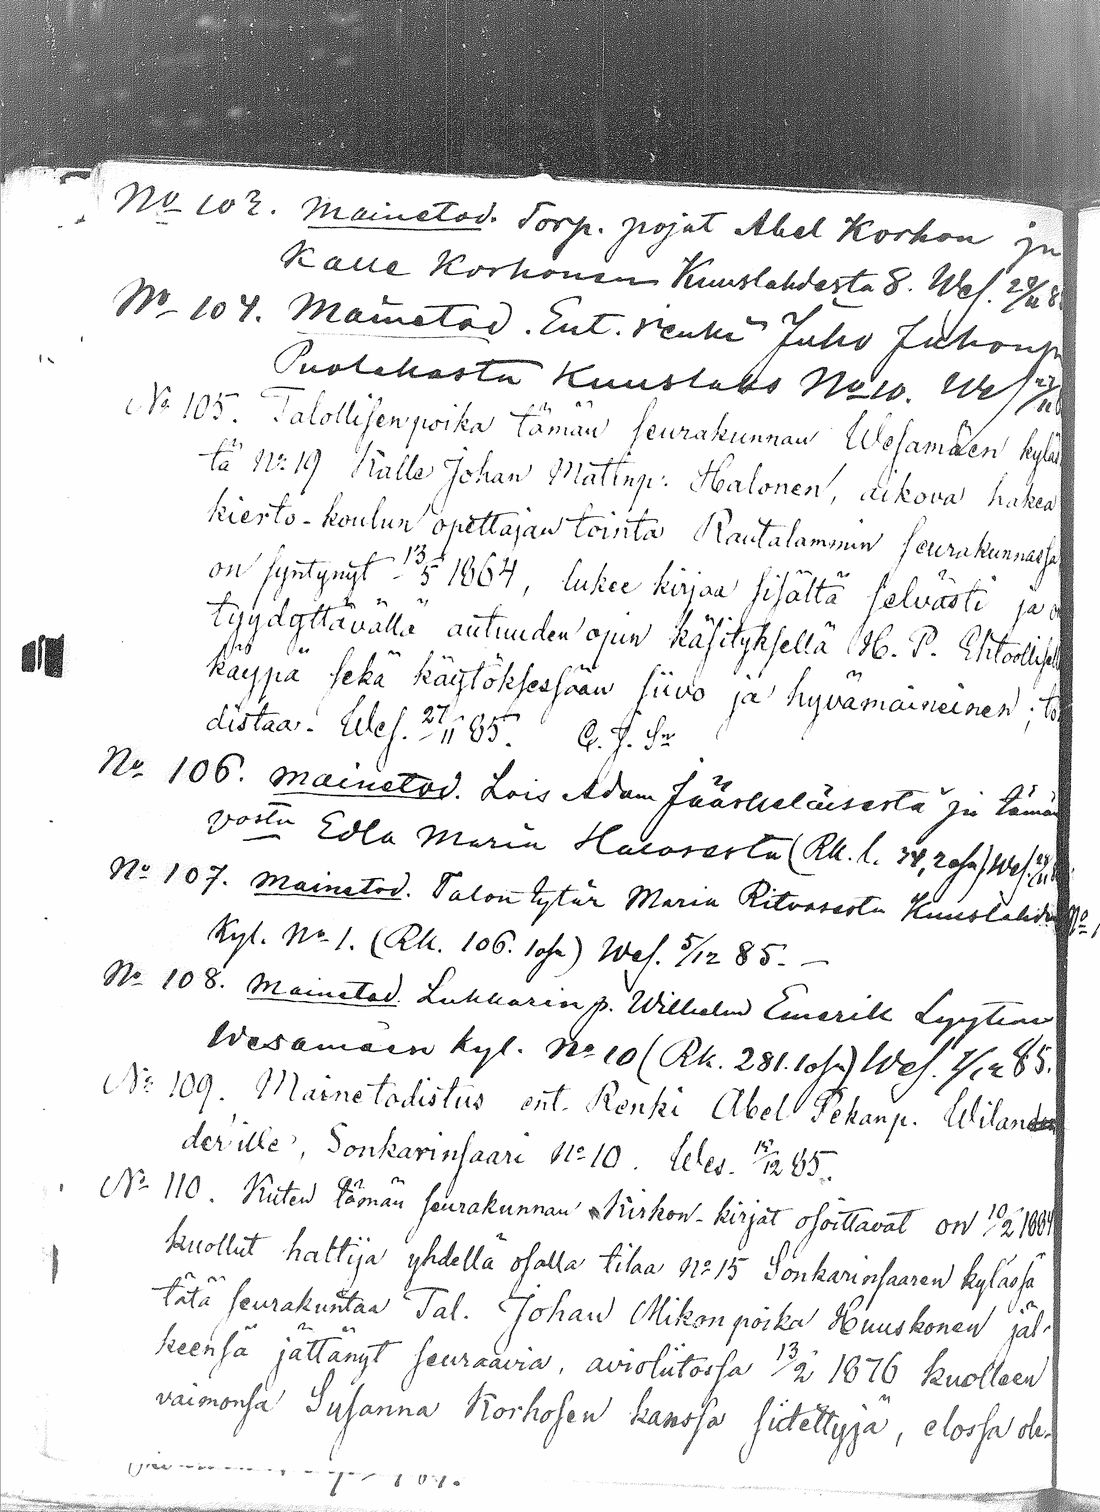 No 103. Mainetod. Torp. pojat Abel Korhon ja
Kalle Korhonen Kuuslahdesta 8. Wes. 29/11 8
No 104. Mainetod. Ent. renki Juho Juhonp
Puolakasta Kuuslaks No 10. Wes 27/11
No 105. Talollisen poika tämän seurakunnan Wesamäen kyläs
tä No 19 Kalle Johan Matinp. Halonen, aikova hakea
kierto-koulun opettajan tointa Rautalammin seurakunnassa
on syntynyt 13/5 1864, lukee kirjaa sisältä selvästi ja o
tyydyttävällä autuuden opin käsityksellä H. P. Ehtoollisel
käypä sekä käytöksessään siivo ja hyvämaineinen; to
distaa. Wes. 27/11 85. C. J. Sn
No 106. Mainetod. Lois Adam Jääskeläisestä ja tämän
vosta Edla Maria Halosesta (Rk. l. 34, 2 osa) Wes. 28/11
No 107. Mainetod. Talon tytär Maria Ritvasesta Kuuslahden
Kyl. No 1. (Rk. 106. 1 osa) Wes. 5/12 85. –
No 108. Mainetod. Lukkarin p. Wilhelm Emerik Lyytinen
Wesamäen kyl. No 10 (Rk. 281. 1 osa) Wes. 7/12 85.
No 109. Mainetodistus ent. Renki Abel Pekanp. Wilan
der'ille, Sonkarinsaari No 10. Wes. 12/12 85.
No 110. Kuten tämän seurakunnan Kirkon-kirjat osoittavat on 10/2 1884
kuollut haltija yhdellä osalla tilaa No 15 Sonkarinsaaren kylässä
tätä seurakuntaa Tal. Johan Mikonpoika Huuskonen jäl-
keensä jättänyt seuraavia, avioliitossa 13/2 1876 kuolleen
vaimonsa Susanna Korhosen kanssa siitettyjä, elossa ole-